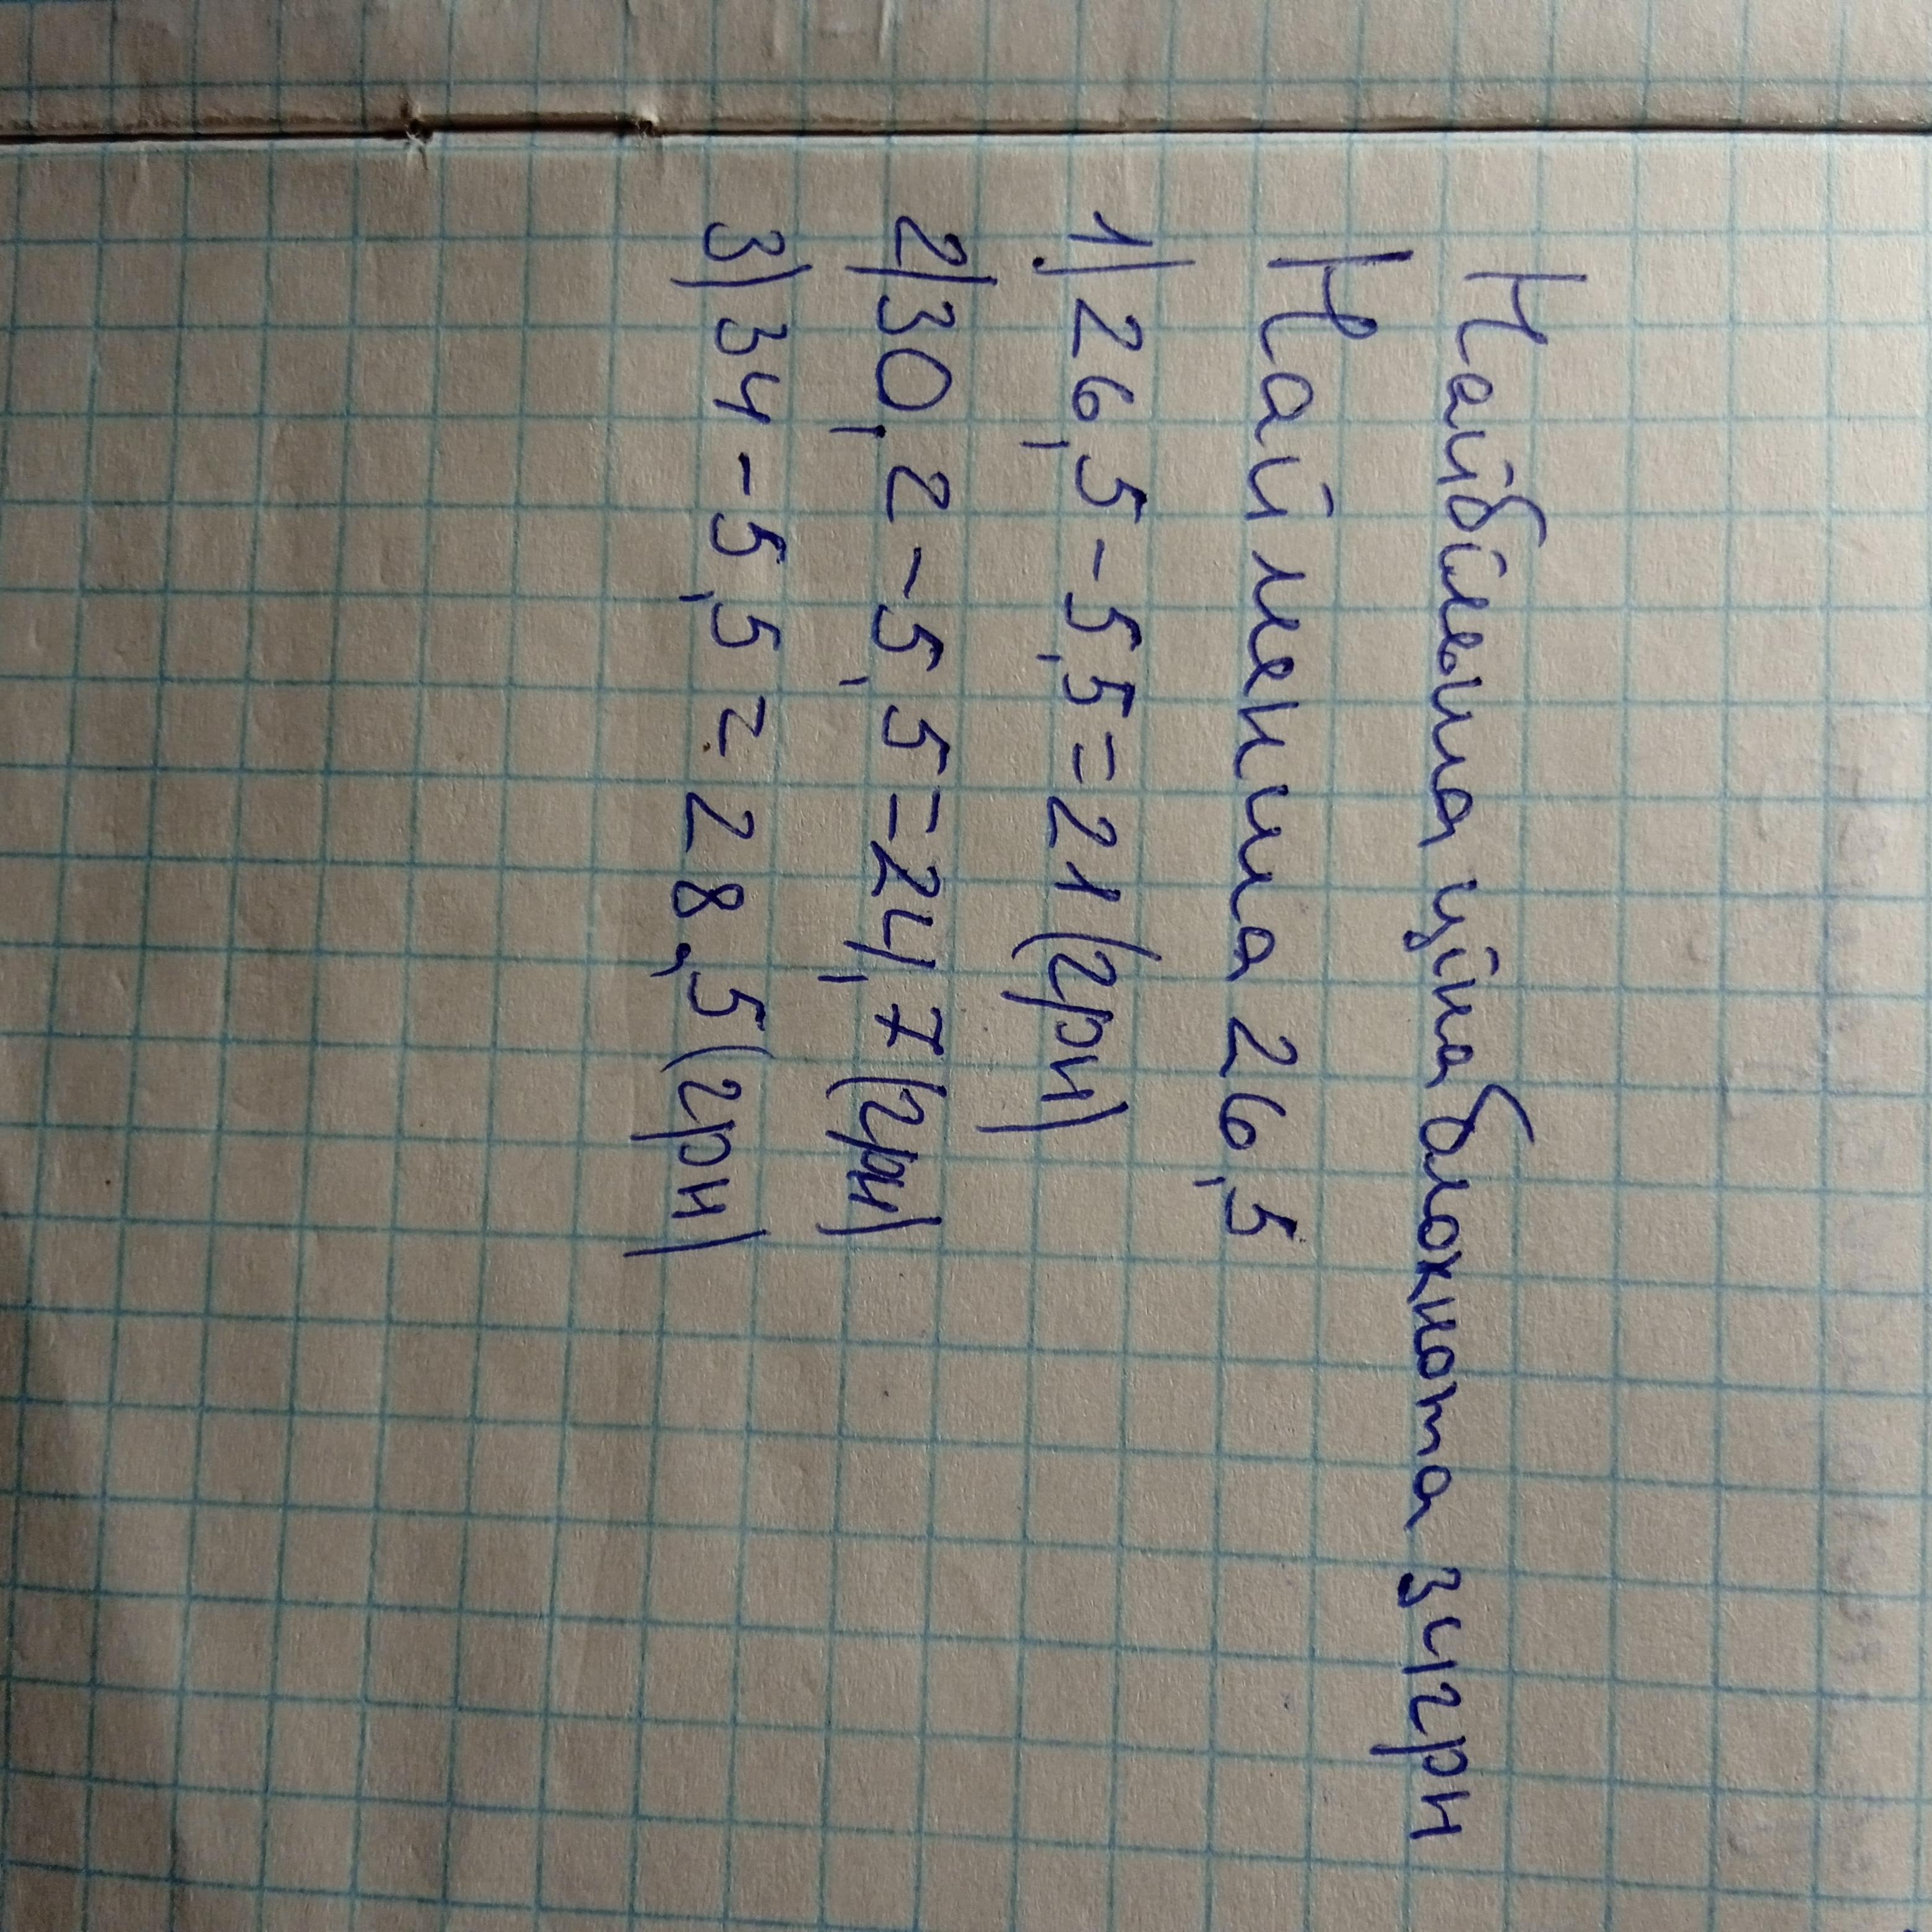 Найбільша ціна блокнота 34грн
Найменша 26,5
1) 26,5-5,5=21(грн)
2) 30,2-5,5=24,7(грн)
3) 34-5,5=28,5(грн)